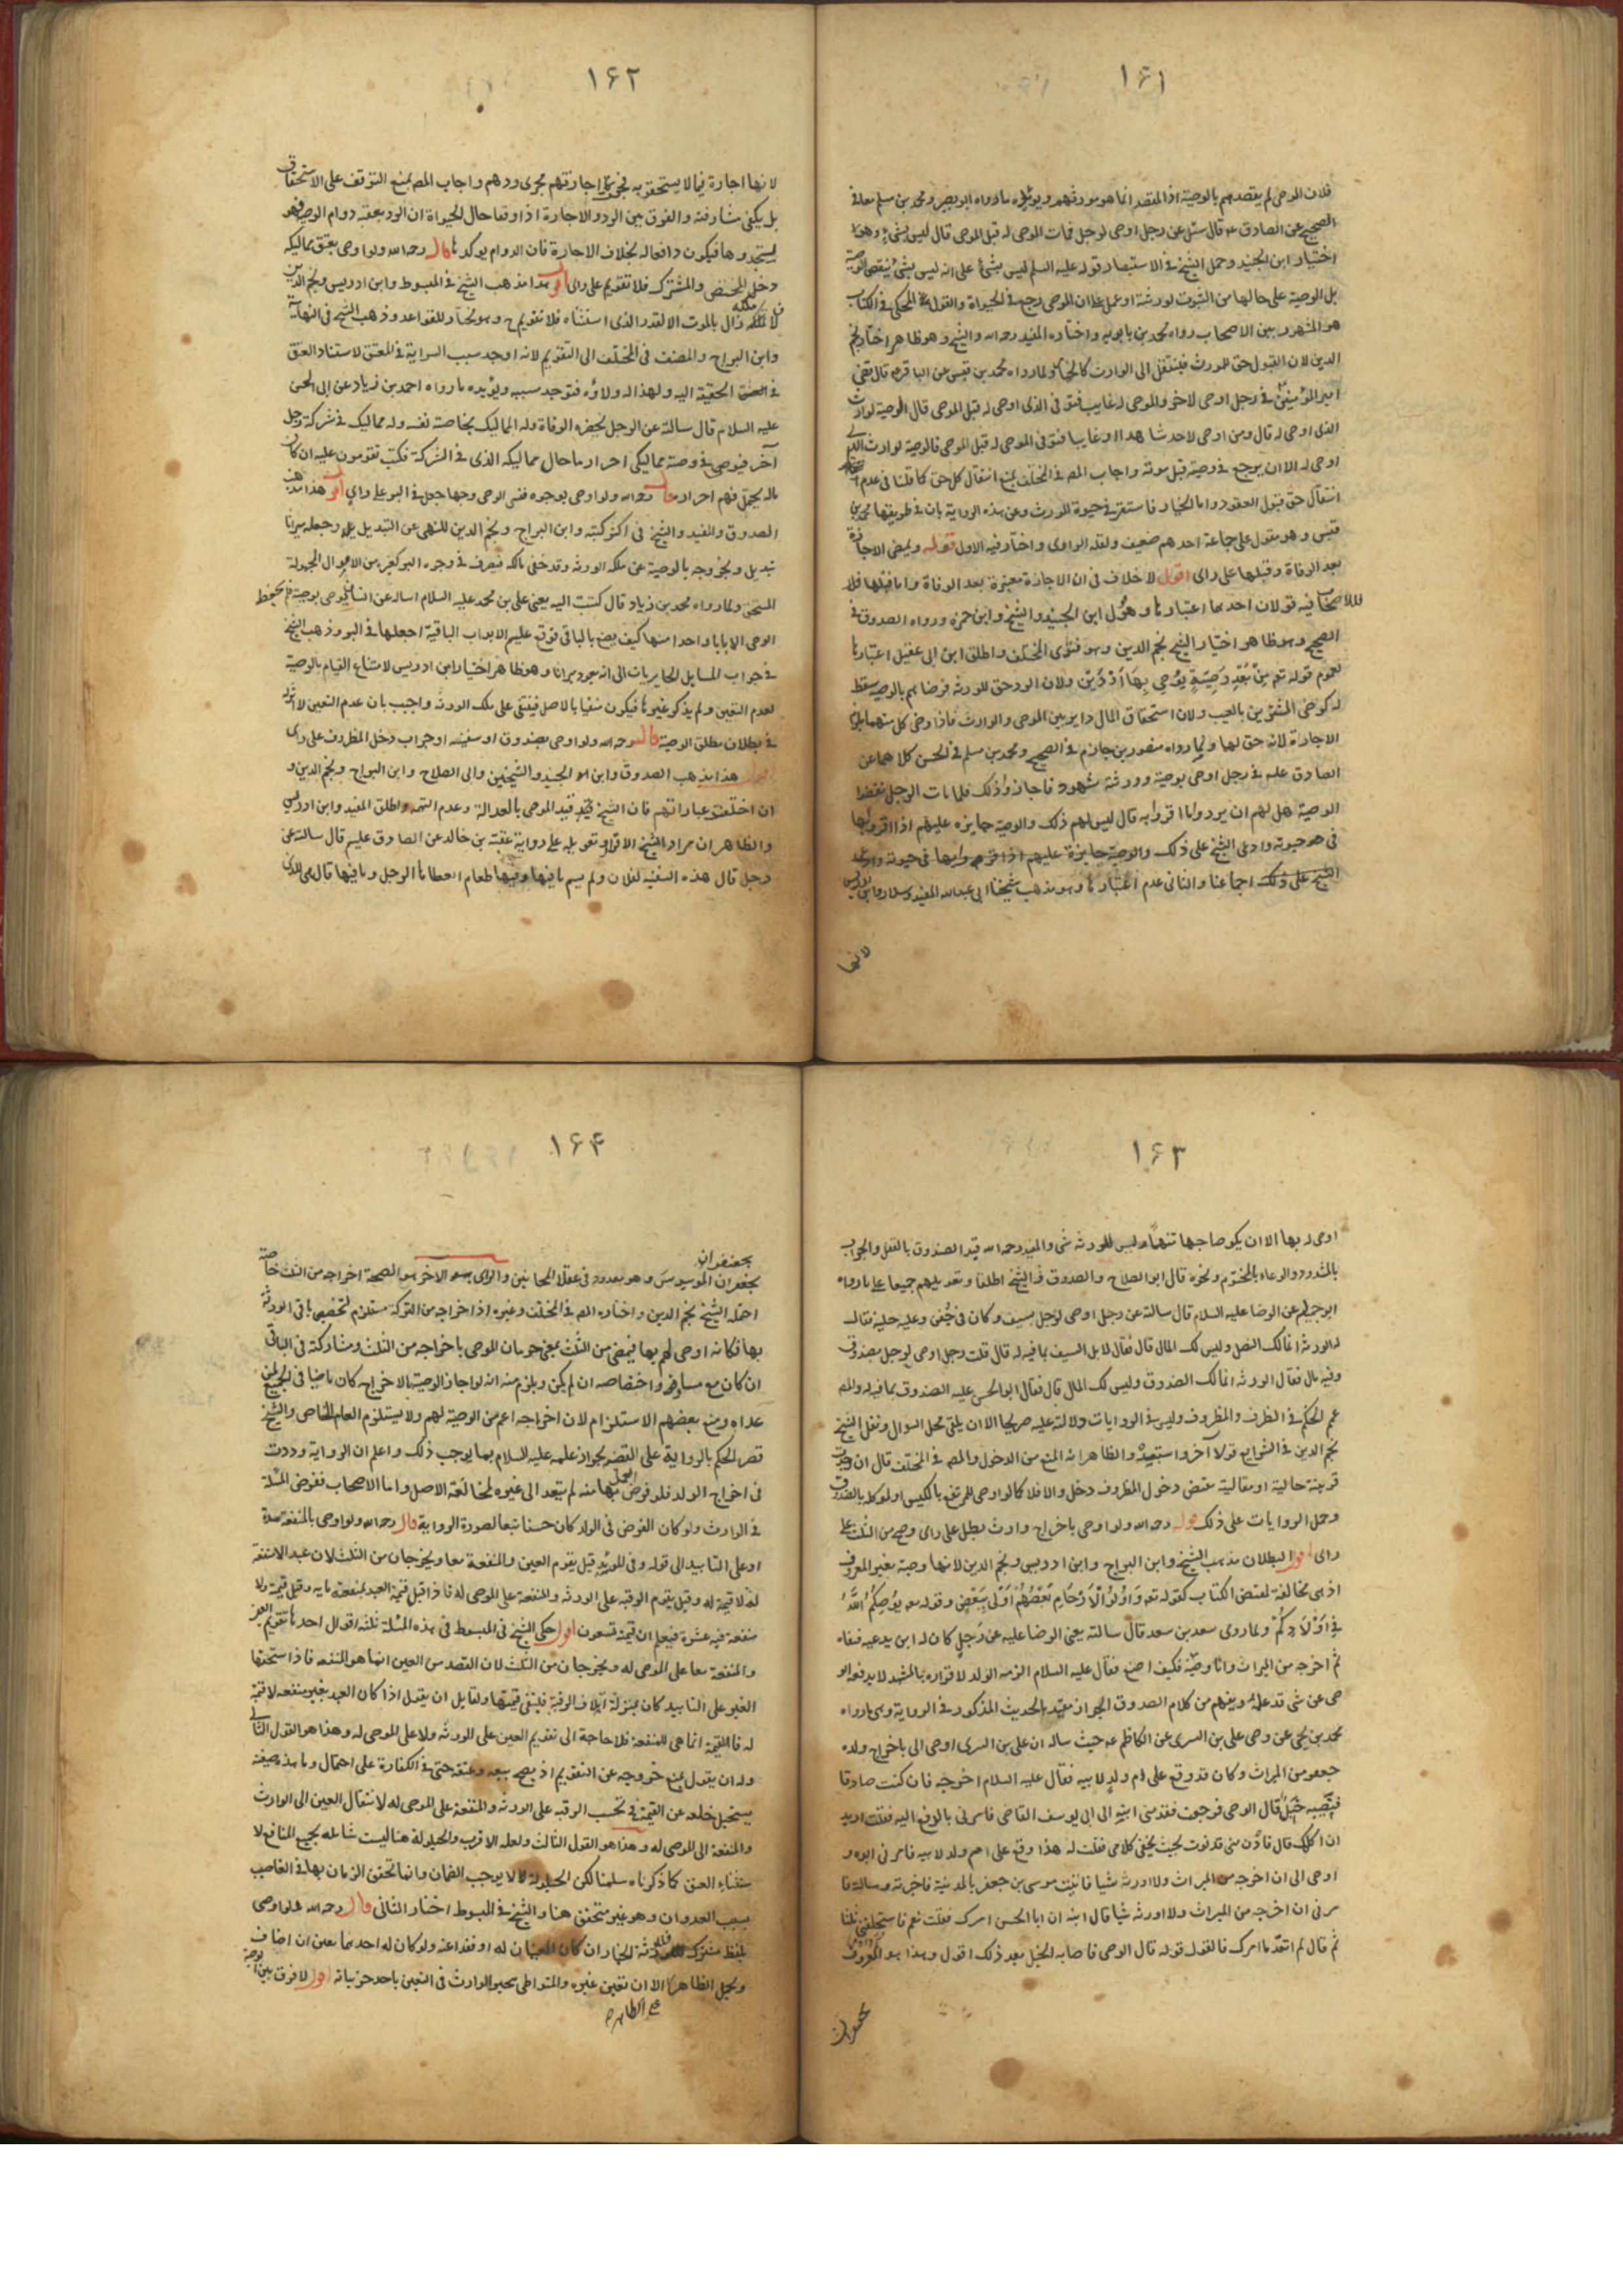 ١۶١
فلان الموصى لم يقصدهم بالوصية اذ المقصد انما هو مورثهم ويؤيده ما رواه ابو بصير ومحمد بن مسلم معا في
الصحيح عن الصادق ع قال سئل عن رجل اوصى لرجل فمات الموصى له قبل الموصى قال ليس بشيء وهو
اختيار ابن الجنيد وحمل الشيخ في الاستبصار قوله عليه السلم ليس بشئ على انه ليس بشئ ينقض الوصية
بل الوصية على حالها من الثبوت لورثته او على ان الموصى رجع في الحيوة والقول المحكى في الكتاب
هو المشهور بين الاصحاب رواه محمد بن بابويه واختاره المفيد رحمه الله والشيخ وهو ظاهر اختيار نجم
الدين لان القبول حق للمورث فينتقل الى الوارث كالخيار ولما رواه محمد بن قيس عن الباقر ع قال قضى
امير المؤمنين في رجل اوصى لاخر والموصى له غايب فتوفى الذى اوصى له قبل الموصى قال الوصية لوارث
الذى اوصى له قال ومن اوصى لاحد شاهدا او غايبا فتوفى الموصى له قبل الموصى فالوصية لوارث الذى
اوصى له الا ان يرجع في وصيته قبل موته واجاب المص في المختلف بمنع انتقال كل حق كما قلنا في عدم
انتقال حق قبول العقود واما الخيار فاستقر في حيوة المورث وعن هذه الرواية بان في طريقها محمد بن
قيس وهو مقول على جماعة احدهم ضعيف ولعله الراوى واختار فيه الاول قوله ويمضى الاجازة
بعد الوفاة وقبلها على راى اقول لا خلاف في ان الاجازة معتبرة بعد الوفاة واما قبلها فللاصحاب
فيه قولان احدهما اعتبارها وهو قول ابن الجنيد والشيخ وابن حمزه ورواه الصدوق في
الصحيح وهو ظاهر اختيار الشيخ نجم الدين وهو فتوى المختلف واطلق ابن ابى عقيل اعتبارها
لعموم قوله تع من بعد وصية يوصى بها او دين ولان الرد حق للورثه فرضاهم بالوصية يسقط
له كرضى المشترين بالعيب ولان استحقاق المال داير بين الموصى والوارث فاذا رضى كل منهما
الاجازة لانه حق لها ولما رواه منصور بن حازم في الصحيح ومحمد بن مسلم في الحسن كلاهما عن
الصادق عليه في رجل اوصى بوصية وورثته شهود فاجازوا ذلك فلما مات الرجل نقضوا
الوصية هل لهم ان يردوا ما اقروا به قال ليس لهم ذلك والوصية جايزه عليهم اذا اقروا بها
في حيوته وادعى الشيخ على ذلك والوصية جايزة عليهم اذا اقروا بها في حيوته وادعى
الشيخ على ذلك اجماعنا والثانى عدم اعتبارها وهو مذهب شيخنا ابى عبدالله المفيد وسلار وابن ادريس
لانها
١۶٢
لانها اجازة فيما لا يستحقونه فيجرى اجازتهم مجرى ردهم واجاب المص بمنع التوقف على الاستحقاق
بل يكفى مشارفته والفرق بين الرد والاجازة اذا وقعا حال الحيواة ان الرد يعقبه دوام الوصية فهو
يستجدها فيكون دافعا له بخلاف الاجازة فان الدوام يوكدها قال رحمه الله ولو اوصى بعتق مماليكه
دخل المختص والمشترك فلا تقويم على راى اقول هذا مذهب الشيخ في المبسوط وابن ادريس ونجم الدين
لان ملكه زال بالموت الا لقدر الذى استثناه فلا تقويم ح وهو مختار للقواعد وذهب الشيخ في النهاية
وابن البراج والمصنف في المختلف الى التقويم لانه اوجد سبب السراية في المعتق لاستناد العتق
في الحقيقة اليه ولهذا له ولاؤه فتوجد سببه ويؤيده ما رواه احمد بن زياد عن ابى الحسن
عليه السلام قال سالته عن الرجل يحضره الوفاة وله المماليك بخاصة نفسه وله مماليك في شركة رجل
آخر فيوصى في وصيته مماليكى احرار ما حال مماليكه الذى في الشركة فكتب تقومون عليه ان كان
ماله يحتمل فهم احرار قال رحمه الله ولو اوصى بوجوه فنسى الوصى وجها جعل في البر على راى اقول هذا مذهب
الصدوق والمفيد والشيخ في اكثر كتبه وابن البراج ونجم الدين للنهى عن التبديل وجعله ميراثا
تبديل ولخروجه بالوصية عن ملك الورثة وقد خفى مالكه فيصرف في وجوه البر كغيره من الاموال المجهولة
المستحق ولما رواه محمد بن زياد قال كتبت اليه يعنى على بن محمد عليه السلام اساله عن انسان يوصى بوصية فلم يحفظ
الوصى الا بابا واحدا منها كيف يصنع بالباقى فوقع عليه الابواب الباقية اجعلها في البر وذهب الشيخ
في جواب المسايل الحايريات الى انه يعود ميراثا وهو ظاهر اختيار ابن ادريس لامتناع القيام بالوصية
لعدم التعين ولم يذكر غيرها فيكون منفيا بالاصل فيبقى على ملك الورثه واجيب بان عدم التعين لا اثر له
في بطلان مطلق الوصية قال رحمه الله ولو اوصى بصندوق او سفينه او جراب دخل المظروف على راى
اقول هذا مذهب الصدوق وابن الجنيد والشيخين وابى الصلاح وابن البراج ونجم الدين و
ان اختلفت عباراتهم فان الشيخ قيد الموصى بالعدالة وعدم التهمه واطلق المفيد وابن ادريس
والظاهر ان مراد الشيخ الاقرار تعويله على رواية عقبة بن خالد عن الصادق عليه قال سالته عن
رجل قال هذه السفينه لفلان ولم يسم ما فيها وفيها طعام ايعطاها الرجل وما فيها قال هى للذى
١۶٣
اوصى له بها الا ان يكون صاحبها متهما وليس للورثه شى والمفيد رحمه الله قيد الصندوق بالقفل والجراب
بالمشدود والوعاء بالمختوم ونحوه قال ابو الصلاح والصدوق والشيخ اطلقا وتعويلهم جميعا على ما رواه
ابو جميله عن الرضا عليه السلام قال سالته عن رجل اوصى لرجل بسيف وكان في جفن وعليه حلية فقالت
له الورثه انما لك النصل وليس لك المال قال فقال لا بل السيف بما فيه له قال قلت رجل اوصى لرجل بصندوق
وفيه مال فقال الورثه انما لك الصندوق وليس لك المال قال فقال ابو الحسن عليه الصندوق بما فيه له والمص
عمم الحكم في الظرف والمظروف وليس في الروايات دلالة عليه صريحا الا ان يلقى محل السوال ونقل الشيخ
نجم الدين في الشرايع قولا آخر واستبعده والظاهر انه المنع من الدخول والمص في المختلف قال ان وجدت
قرينة حالية او مقالية تقتضى دخول المظروف دخل والا فلا كما لو اوصى بالكيس او بالصندوق
وحمل الروايات على ذلك قوله رحمه الله ولو اوصى باخراج وارث بطل على راى وصح من الثلث على
راى اقول البطلان مذهب الشيخ وابن البراج وابن ادريس ونجم الدين لانها وصية بغير المعروف
اذ هى مخالفة لمقتضى الكتاب كقوله تع واولوا الارحام بعضهم اولى ببعض وقوله تع يوصيكم الله
في اولادكم ولما روى سعد بن سعد قال سالته يعنى الرضا عليه عن رجل كان له ابن يدعيه فنفاه
ثم اخرجه من الميراث وانا وصيه فكيف اصنع فقال عليه السلام الزمه الولد لاقراره بالمشهد لا يدفعه الو
صى عن شى قد علمه ويفهم من كلام الصدوق الجواز مقيد بالحديث المذكور في الرواية وهى ما رواه
محمد بن يحيى عن وصى على بن السرى عن الكاظم ع حيث ساله ان على بن السرى اوصى الى باخراج ولده
جعفر من الميراث وكان قد وقع على ام ولد لابيه فقال عليه السلام اخرجه فان كنت صادقا
فيصيبه خبل قال الوصى فرجعت فقدمنى ابنه الى ابى يوسف القاضى فامرنى بالدفع اليه فقلت اريد
ان اكلمك قال فادن منى فدنوت بحيث يخفى كلامى فقلت له هذا وقع على ام ولد لابيه فامرنى ابوه و
اوصى الى ان اخرجه من الميراث ولا اورثه شيا فاتيت موسى بن جعفر بالمدينة فاخبرته وسالته فا
مرنى ان اخرجه من الميراث ولا اورثه شيا قال الله ان ابا الحسن امرك فقلت نعم فاستحلفنى ثلثا
ثم قال لم اتعد ما امرك فالقول قوله قال الوصى فاصابه الخبل بعد ذلك اقول وهذا هو المعروف
١۶۴
بجعفران الموسوس وهو معدود في عقلاء المجانين والراى الاخر هو الصحة اخراجه من الثلث خاصة
احتمله الشيخ نجم الدين واختاره المص في المختلف وغيره اذ اخراجه من التركة مستلزم لتخصيص باقى الورثه
بها فكانه اوصى لهم بها فيمضى من الثلث بمعنى حرمان الموصى باخراجه من الثلث ومشاركته في الباقى
ان كان مع مساو له واختصاصه ان لم يكن ويلزم منه انه لو اجاز الوصية بالاخراج كان ماضيا في الجميع لمن
عداه ومنع بعضهم الاستلزام لان اخراجه اعم من الوصية لهم ولا يستلزم العام الخاص والشيخ
قصر الحكم بالرواية على القضيه بجواز علمه عليه السلام بما يوجب ذلك واعلم ان الرواية وردت
في اخراج الولد فلو فرض العمل بها منه لم يتعد الى غيره لمخالفة الاصل واما الاصحاب ففرض المسئلة
في الوارث ولو كان الفرض في الولد كان حسنا تبعا لصورة الرواية قال رحمه الله ولو اوصى بالمنفعة مدة
او على التابيد الى قوله وفى المؤبد قيل يقوم العين والمنفعة معا ويخرجان من الثلث لان عبدا لا منفعة
له لا قيمة له وقيل يقوم الرقبه على الورثه والمنفعة على الموصى له فاذا قيل قيمة العبد بمنفعته مايه وقيل قيمته ولا
منفعة فيه عشرة فيعلم ان قيمة تسعون اقول حكى الشيخ في المبسوط في هذه المسئلة ثلثه اقوال احدها تقويم العين
والمنفعة معا على الموصى له ويخرجان من الثلث لان القصد من العين انما هو المنفعه فاذا استحقها
الغير على التابيد كان بمنزلة اتلاف الرقبة فيبقى قيمتها ولقايل ان يقول اذا كان العبد بغير منفعه لا قيمة
له فالقيمة انما هى للمنفعة فلا حاجة الى تقويم العين على الورثه ولا على الموصى له وهذا هو القول الثانى
وله ان يقول بمنع خروجه عن التقويم اذ يصح بيعه وعتقه حتى في الكفارة على احتمال وما هذه صفته
يستحيل خلعه عن القيمة فى تحسب الرقبه على الورثه والمنفعة على الموصى له لانتقال العين الى الوارث
والمنفعة الى الموصى له وهذا هو القول الثالث ولعله الاقرب والحيلولة هنا ليست شامله بجميع المنافع لا
ستثناء العتق كما ذكرناه سلمنا لكن الحيلولة لا يوجب الضمان وانما تحقق الزمان بها في الغاصب
بسبب العدوان وهو غير متحقق هنا والشيخ في المبسوط اختار الثانى قال رحمه الله ولو اوصى
بلفظ مشترك فللورثة الخيار ان كان المعنيان له او فقدا عنه ولو كان له احدهما تعين ان اضاف
ويحمل الظاهر الا ان تقين غيره والمتواطى يتخير الوارث في التعين باحد جزئياته اقول لا فرق بين الوصية
على الظاهر